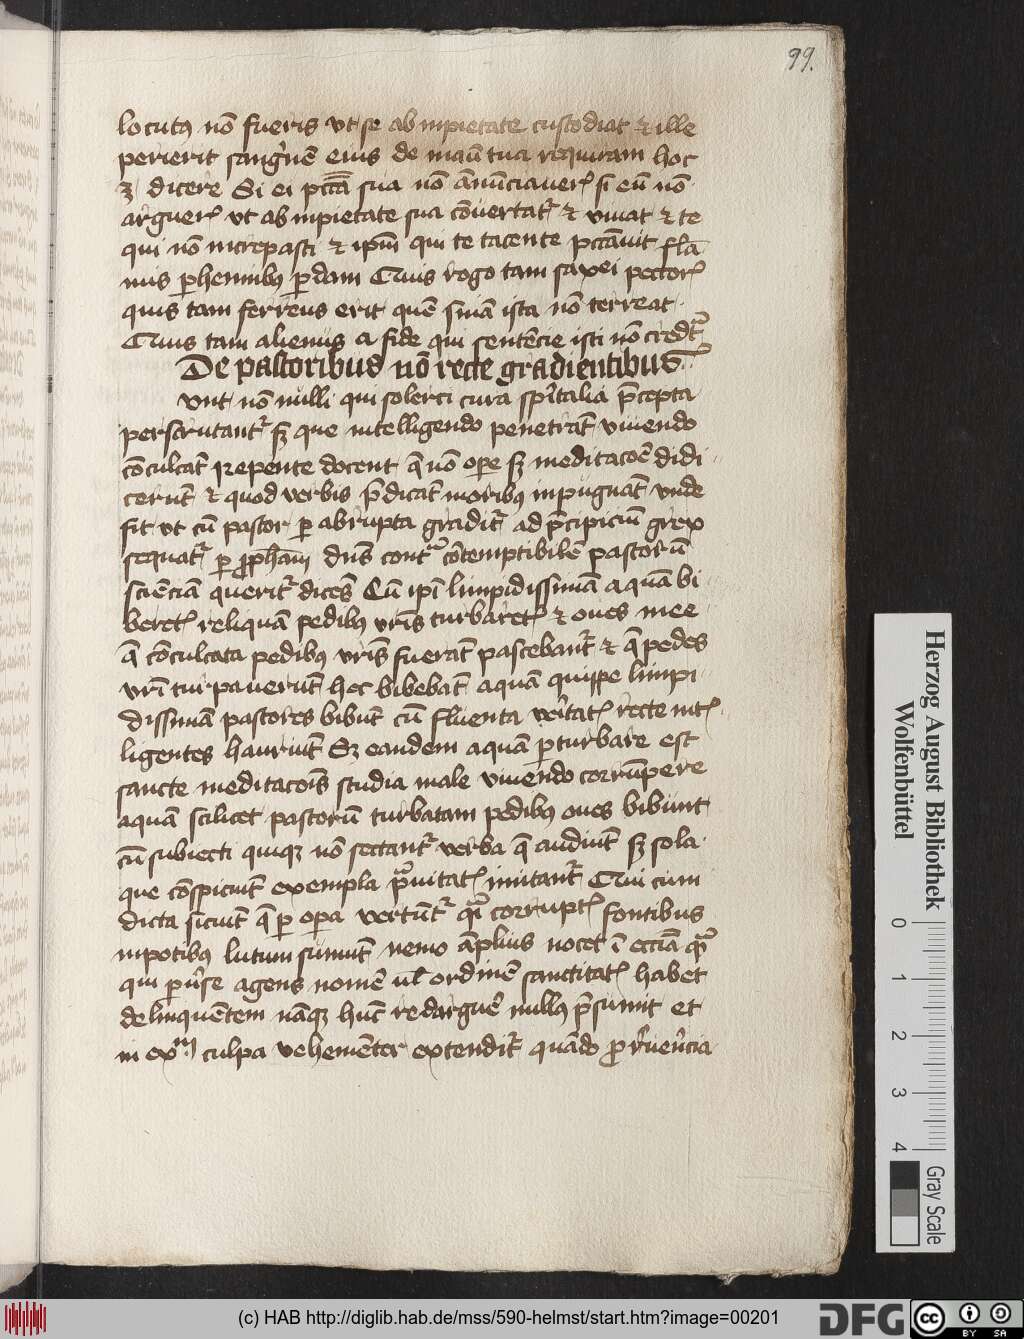 99.
locutꝰ nō fueris vt se ab inpietate custodiat ⁊ ille
perierit sangͥnē eius de manu tua requiram hoc
ꝫ dicere Si ei pctā sua nō ānūciauerꝭ si eū nō
argueꝭ vt ab inpietate sua cōuertatᷣ ⁊ viuat ⁊ te
qui nō increpasti ⁊ ipm̄ qui te tacente pctāuit flā
mis ꝑhennibꝰ ꝑdam Quis rogo tam saxei pectorꝭ
quis tam ferreus erit quē snīa ista nō terreat
Quis tam alienus a fide qui sentēcie isti nō credtᷣ
De pastoribus nō recte gradientibus
Unt nō nulli qui solerti cura spīꝛitalia p̄cepta
perscrutantᷣ sꝫ que intelligendo penetrāt viuendo
cōculcāt Repente docent q̄ nō oꝑe sꝫ meditacōe didi
cerūt ⁊ quod verbis p̄dicāt moribꝰ inpugnāt vnde
fit vt cū pastor ꝑ abrupta graditᷣ ad p̄cipiciū grex
sequatᷣ ꝑ ꝓphetam dn̄s contᷓ cōtemptibilē pastorū
sciēciam queritᷣ dicēs Cū ipī limpidissimā aquā bi
beretꝭ reliquā pedibꝰ vrīs turbaretꝭ ⁊ oues mee
q̄ cōculcata pedibꝰ vrīs fuerāt pascebantᷣ ⁊ q̄ pedes
vrī turpauerūt hoc bibebāt aquā quippe limpi
dissimā pastores bibūt cū fluenta veritatꝭ recte intꝭ
ligentes hauriūt Sꝫ eandem aquā ꝑturbare est
sancte meditacōis studia male viuendo corrūpere
aquā scilicet pastorū turbatam pedibꝰ oues bibunt
cū subiecti quiqꝫ nō sectantᷣ verba q̄ audiūt sꝫ sola
que cōspiciūt exempla pᷓuitatꝭ imitantᷣ Qui cum
dicta siciūt q̄ ꝑ oꝑa vertūtᷣ qͣi corruptꝭ fontibus
inpotibꝰ lutum sumūt nemo āplius nocet ī eccīa qͣꝫ
qui ꝑuͥse agens nomē ul̄ ordinē sanctitatꝭ habet
delinquētem nāqꝫ hūc redarguē nullꝰ p̄sumit et
in exᵐ culpa vehemēter extenditᷣ quādo ꝓ reuēncia
Herzog August Bibliothek
Wolfenbüttel
0 1 2 3 4
Gray Scale
(c) HAB http://diglib.hab.de/mss/590-helmst/start.htm?image=00201
DFG
cc BY SA